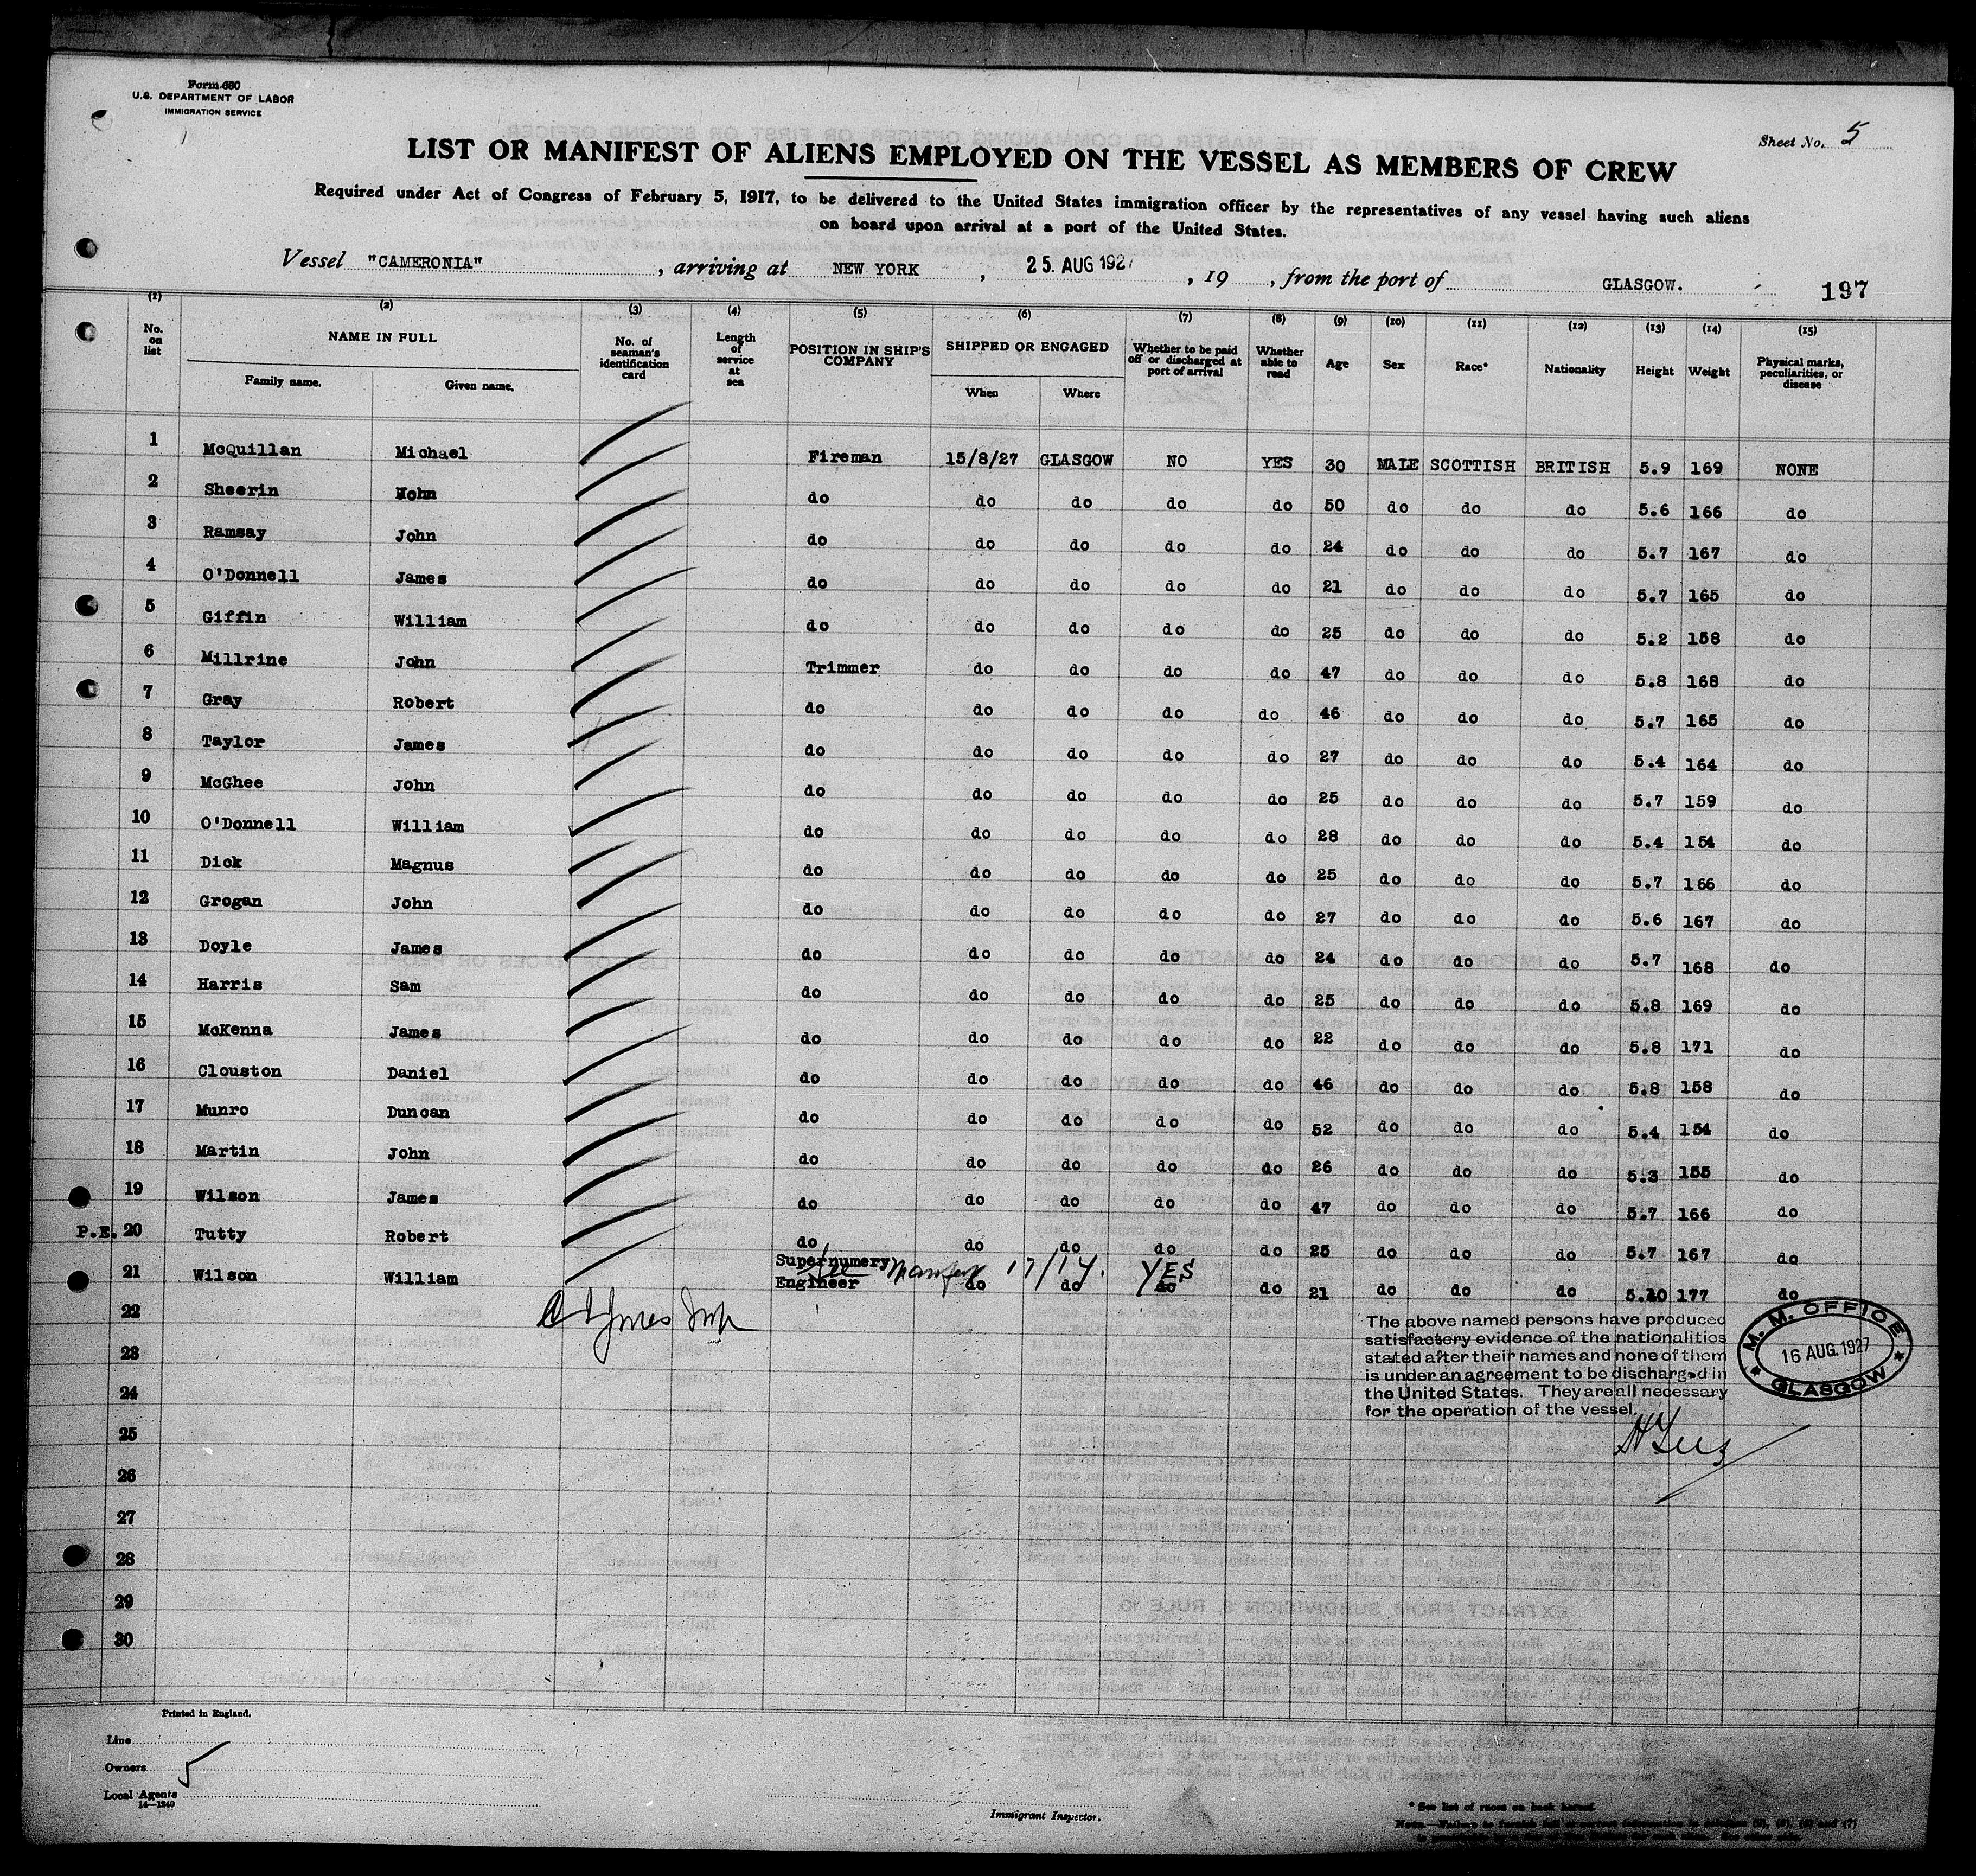 Form 680
U.S. DEPARTMENT OF LABOR
IMMIGRATION SERVICE
Sheet No. 5
LIST OR MANIFEST OF ALIENS EMPLOYED ON THE VESSEL AS MEMBERS OF CREW
Required under Act of Congress of February 5, 1917, to be delivered to the United States immigration officer by the representatives of any vessel having such aliens
on board upon arrival at a port of the United States.
Vessel "CAMERONIA", arriving at NEW YORK, 25. AUG 1927, 19 , from the port of GLASGOW. 197
(1) (2) (3) (4) (5) (6) (7) (8) (9) (10) (11) (12) (13) (14) (15)
No. on list NAME IN FULL Family name. Given name. No. of seaman's identification card Length of service at sea POSITION IN SHIP'S COMPANY SHIPPED OR ENGAGED When Where Whether to be paid off or discharged at port of arrival Whether able to read Age Sex Race* Nationality Height Weight Physical marks, peculiarities, or disease
1 McQuillan Michael Fireman 15/8/27 GLASGOW NO YES 30 MALE SCOTTISH BRITISH 5.9 169 NONE
2 Sheerin Hohn do do do do do 50 do do do 5.6 166 do
3 Ramsay John do do do do do 24 do do do 5.7 167 do
4 O'Donnell James do do do do do 21 do do do 5.7 165 do
5 Giffin William do do do do do 25 do do do 5.2 158 do
6 Millrine John Trimmer do do do do 47 do do do 5.8 168 do
7 Gray Robert do do do do do 46 do do do 5.7 165 do
8 Taylor James do do do do do 27 do do do 5.4 164 do
9 McGhee John do do do do do 25 do do do 5.7 159 do
10 O'Donnell William do do do do do 28 do do do 5.4 154 do
11 Dick Magnus do do do do do 25 do do do 5.7 166 do
12 Grogan John do do do do do 27 do do do 5.6 167 do
13 Doyle James do do do do do 24 do do do 5.7 168 do
14 Harris Sam do do do do do 25 do do do 5.8 169 do
15 McKenna James do do do do do 22 do do do 5.8 171 do
16 Clouston Daniel do do do do do 46 do do do 5.8 158 do
17 Munro Duncan do do do do do 52 do do do 5.4 154 do
18 Martin John do do do do do 26 do do do 5.3 155 do
19 Wilson James do do do do do 47 do do do 5.7 166 do
P.E. 20 Tutty Robert do do do do do 25 do do do 5.7 167 do
21 Wilson William Supernumery Engineer do do do do 21 do do do 5.10 177 do
See Manifest 17/14. YES
22
23
24
25
26
27
28
29
30
The above named persons have produced
satisfactory evidence of the nationalities
stated after their names and none of them
is under an agreement to be discharged in
the United States. They are all necessary
for the operation of the vessel.
M. M. OFFICE
16 AUG. 1927
GLASGOW
Printed in England.
Line
Owners
Local Agents
14—1240
5
Immigrant Inspector.
* See list of races on back hereof.